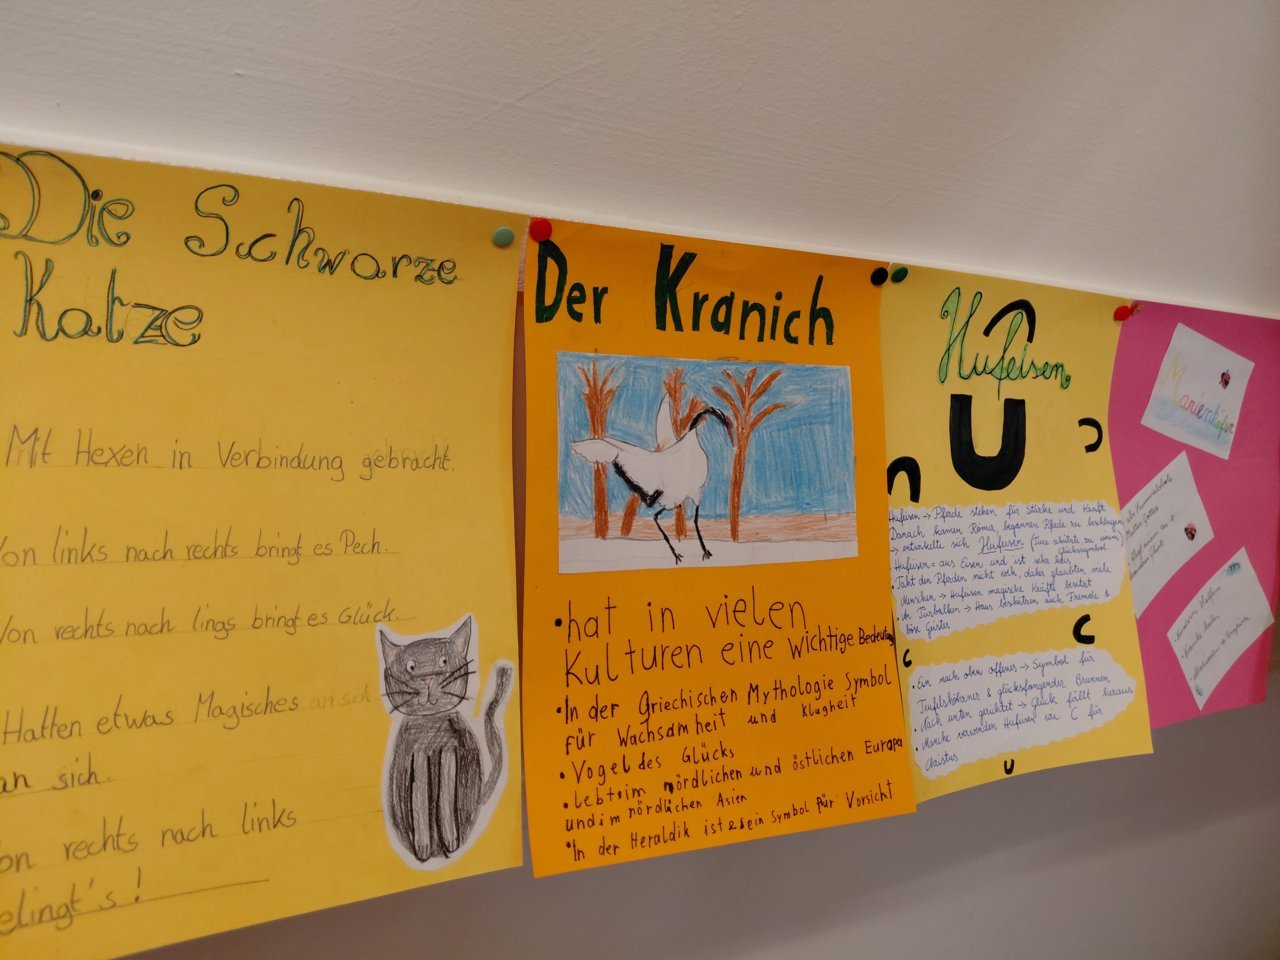 Die Schwarze
Katze
Mit Hexen in Verbindung gebracht.
Von links nach rechts bringt es Pech.
Von rechts nach lings bringt es Glück.
Hatten etwas Magisches an sich
an sich.
von rechts nach links
gelingt's!
Der Kranich
•hat in vielen
Kulturen eine wichtige Bedeutung
•In der Griechischen Mythologie Symbol
für Wachsamheit und Klugheit
•Vogel des Glücks
•lebt im nördlichen und östlichen Europa
und im nördlichen Asien
•In der Heraldik ist es ein Symbol für Vorsicht
Hufeisen
Hufeisen → Pferde stehen für Stärke und Kraft
Danach kamen Römer begannen Pfade zu beschlagen
→ entwickelte sich Hufeisen
Glückssymbol
•Hufeisen = aus Eisen und ist
Taht den Pferden nicht weh, daher glaubten viele
Menschen → Hufeisen magische Kräfte besitzt
•in Türbalken → Haus beschützen auch Fremde &
böse Geister
•Ein nach oben offenes → Symbol für
Teufelshörner & glücksfangender Brunnen
Nach unten gerichtet → Glück fällt heraus
•Manche verwenden Hufeisen wie C für
Christus
Marienkäfer